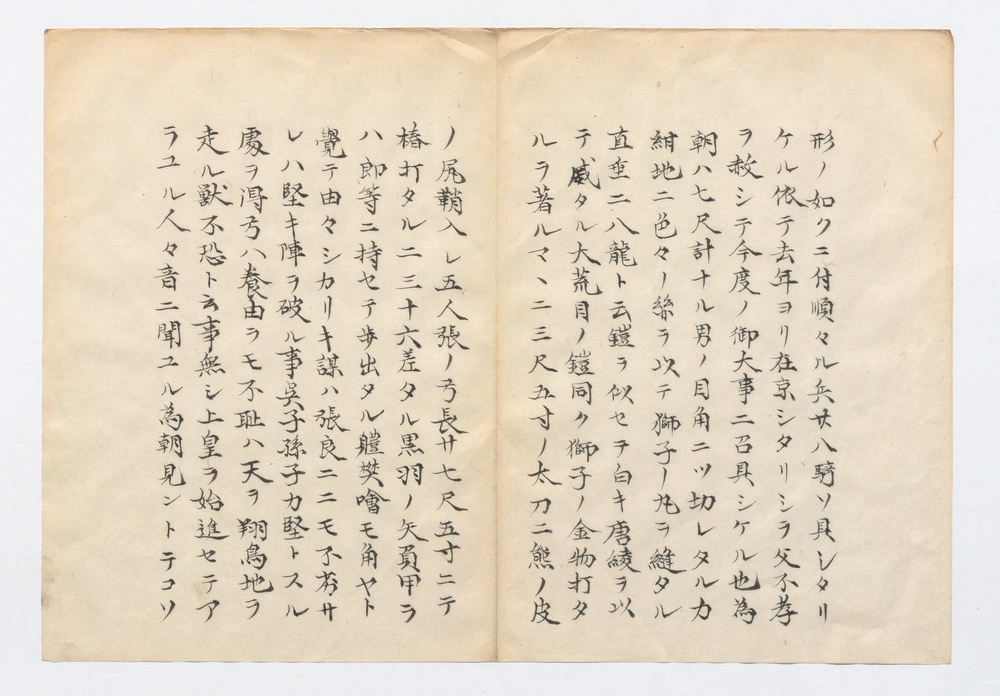 形ノ如クニ付順々ル兵廿八騎ソ具シタリ
ケル依テ去年ヨリ在京シタリシヲ父不孝
ヲ赦シテ今度ノ御大事ニ召具シケル也為
朝ハ七尺計ナル男ノ目角二ツ切レタルカ
紺地ニ色々ノ絲ヲ以テ獅子ノ丸ヲ縫タル
直垂ニ八龍ト云鎧ヲ似セテ白キ唐綾ヲ以
テ威タル大荒目ノ鎧同ク獅子ノ金物打タ
ルヲ著ルマヽニ三尺五寸ノ太刀ニ熊ノ皮
ノ尻鞘入レ五人張ノ弓長サ七尺五寸ニテ
椿打タルニ三十六差タル黒羽ノ矢負甲ヲ
ハ郎等ニ持セテ歩出タル軆樊噲モ角ヤト
覺テ由々シカリキ謀ハ張良ニモ不劣サ
レハ堅キ陣ヲ破ル事呉子孫子カ堅トスル
處ヲ得弓ハ養由ヲモ不耻ハ天ヲ翔鳥地ヲ
走ル獸不恐ト云事無シ上皇ヲ始進セテア
ラユル人々音ニ聞ユル為朝見ントテコソ